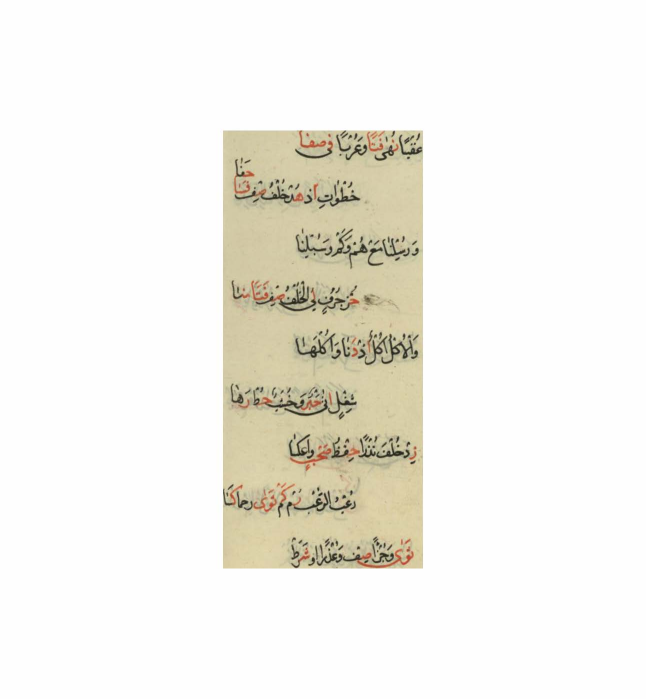 عُقْبًا نُهٰى فَتًا وَعُرْبًا فِى صَفَا
خُطْوَاتِ اذ هُدْ خُلْفُ صِف فَتًا حَفَا
وَرُسْلُنَا مَعْ هُمْ وَكُمْ وَسُبْلَنَا
حُزْ جُرْفٍ لِى الْخُلْفُ صِف فَتًا مِنَا
وَالْاُكْلُ اُكْلُ اذ دَنَا وَاُكْلُهَا
شُغْلٍ اتى حَبْر وَخُشْبٌ حط رَهَا
زِد خُلْفَ نُذْرًا حِفْظُ صَحْبٍ وَاعْكِسَا
رُعْبَ الرُّعْبُ رم كَمْ ثَوٰى رحما كَسَا
ثَوٰى وَجُزْاً صِف وَعُذْرًا او شَرَط